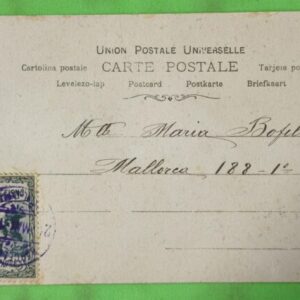 UNION POSTALE UNIVERSELLE
Cartolina postale CARTE POSTALE Tarjeta po
Levelezo-lap Postcard Postkarte Briefkaart
Maria Bofil
Mallorca 188-1º